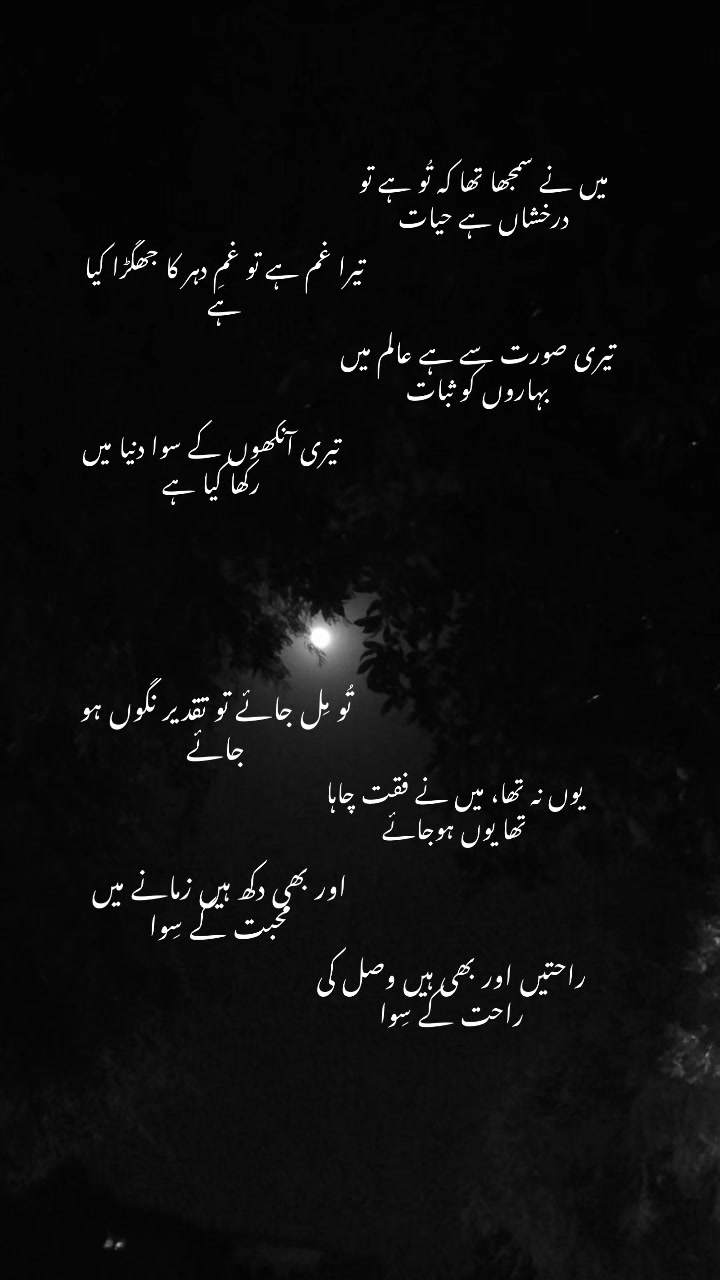 میں نے سمجھا تھا کہ تُو ہے تو
درخشاں ہے حیات
تیرا غم ہے تو غمِ دہر کا جھگڑا کیا
ہے
تیری صورت سے ہے عالم میں
بہاروں کو ثبات
تیری آنکھوں کے سوا دنیا میں
رکھا کیا ہے
تُو مِل جائے تو تقدیر نگوں ہو
جائے
یوں نہ تھا، میں نے فقت چاہا
تھا یوں ہوجائے
اور بھی دکھ ہیں زمانے میں
محبت کے سِوا
راحتیں اور بھی ہیں وصل کی
راحت کے سِوا